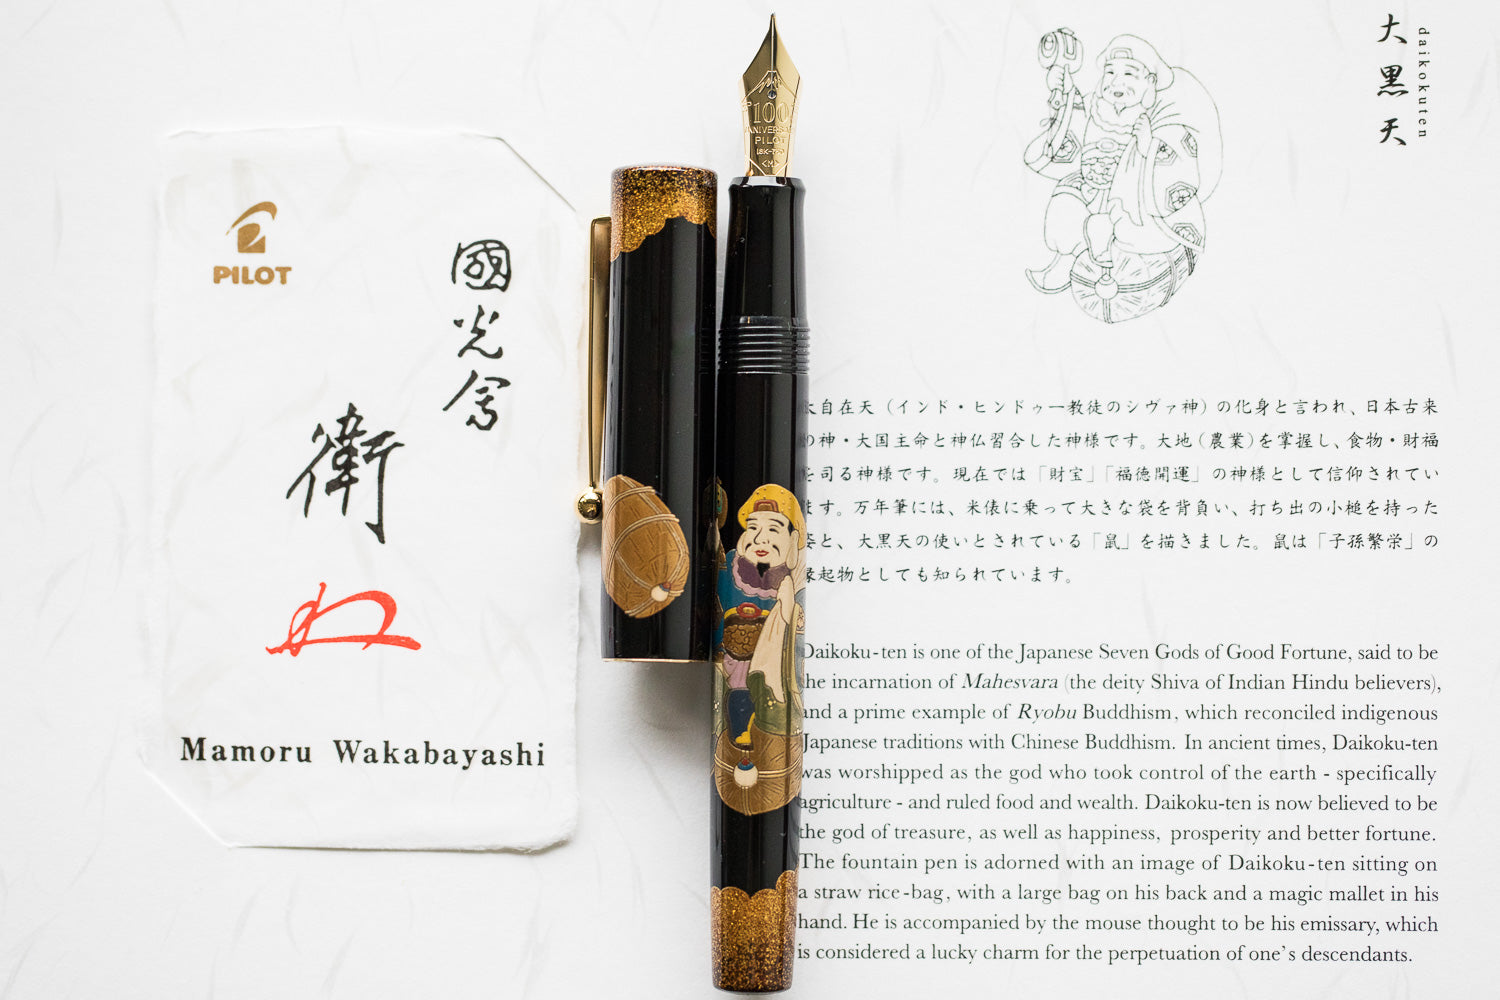 PILOT
國光會
衛
Mamoru Wakabayashi
100
ANNIVERSARY
PILOT
18K-750
<M>
大黒天
daikokuten
大自在天（インド・ヒンドゥー教徒のシヴァ神）の化身と言われ、日本古来
の神・大国主命と神仏習合した神様です。大地（農業）を掌握し、食物・財福
を司る神様です。現在では「財宝」「福徳開運」の神様として信仰されてい
ます。万年筆には、米俵に乗って大きな袋を背負い、打ち出の小槌を持った
姿と、大黒天の使いとされている「鼠」を描きました。鼠は「子孫繁栄」の
縁起物としても知られています。
Daikoku-ten is one of the Japanese Seven Gods of Good Fortune, said to be
the incarnation of Mahesvara (the deity Shiva of Indian Hindu believers),
and a prime example of Ryobu Buddhism, which reconciled indigenous
Japanese traditions with Chinese Buddhism. In ancient times, Daikoku-ten
was worshipped as the god who took control of the earth - specifically
agriculture - and ruled food and wealth. Daikoku-ten is now believed to be
the god of treasure, as well as happiness, prosperity and better fortune.
The fountain pen is adorned with an image of Daikoku-ten sitting on
a straw rice-bag, with a large bag on his back and a magic mallet in his
hand. He is accompanied by the mouse thought to be his emissary, which
is considered a lucky charm for the perpetuation of one's descendants.